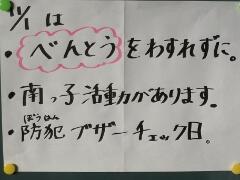 11/1 は
・べんとうをわすれずに。
・南っ子活動があります。
ぼうはん
・防犯ブザーチェック日。